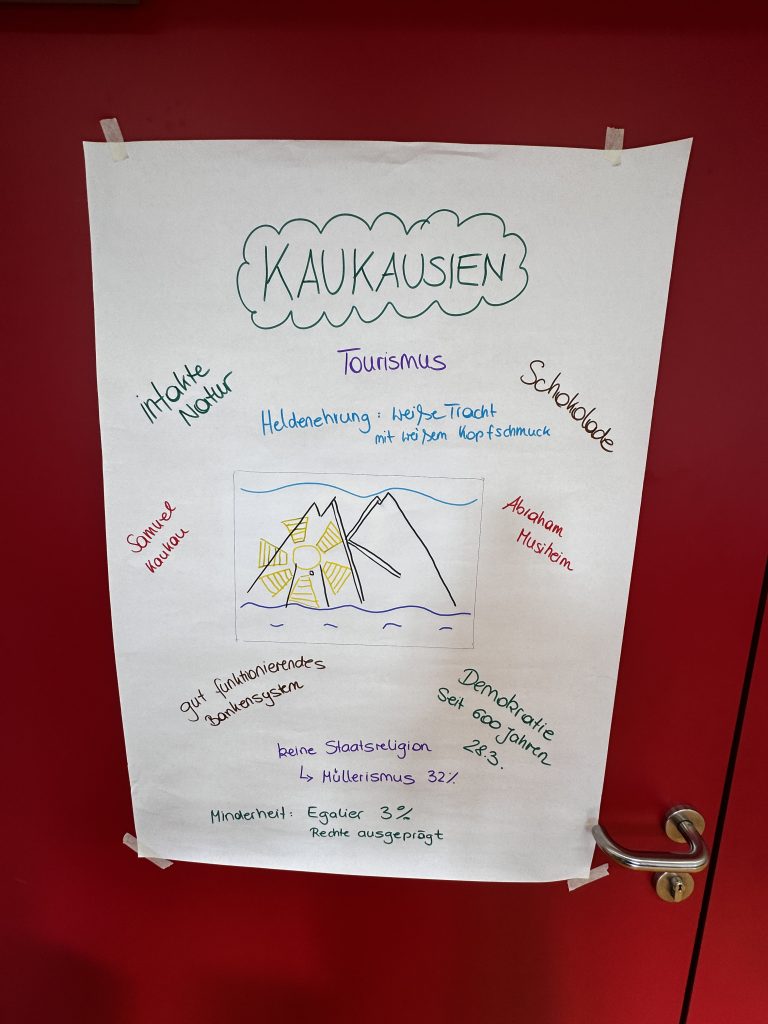 KAUKAUSIEN
Tourismus
intakte
Natur
Schokolade
Heldenehrung: weiße Tracht
mit weißem Kopfschmuck
Samuel
Kaukau
Abraham
Musiheim
gut funktionierendes
Bankensystem
Demokratie
Seit 600 Jahren
28.3.
keine Staatsreligion
↳ Müllerismus 32%
Minderheit: Egalier 3%
Rechte ausgeprägt